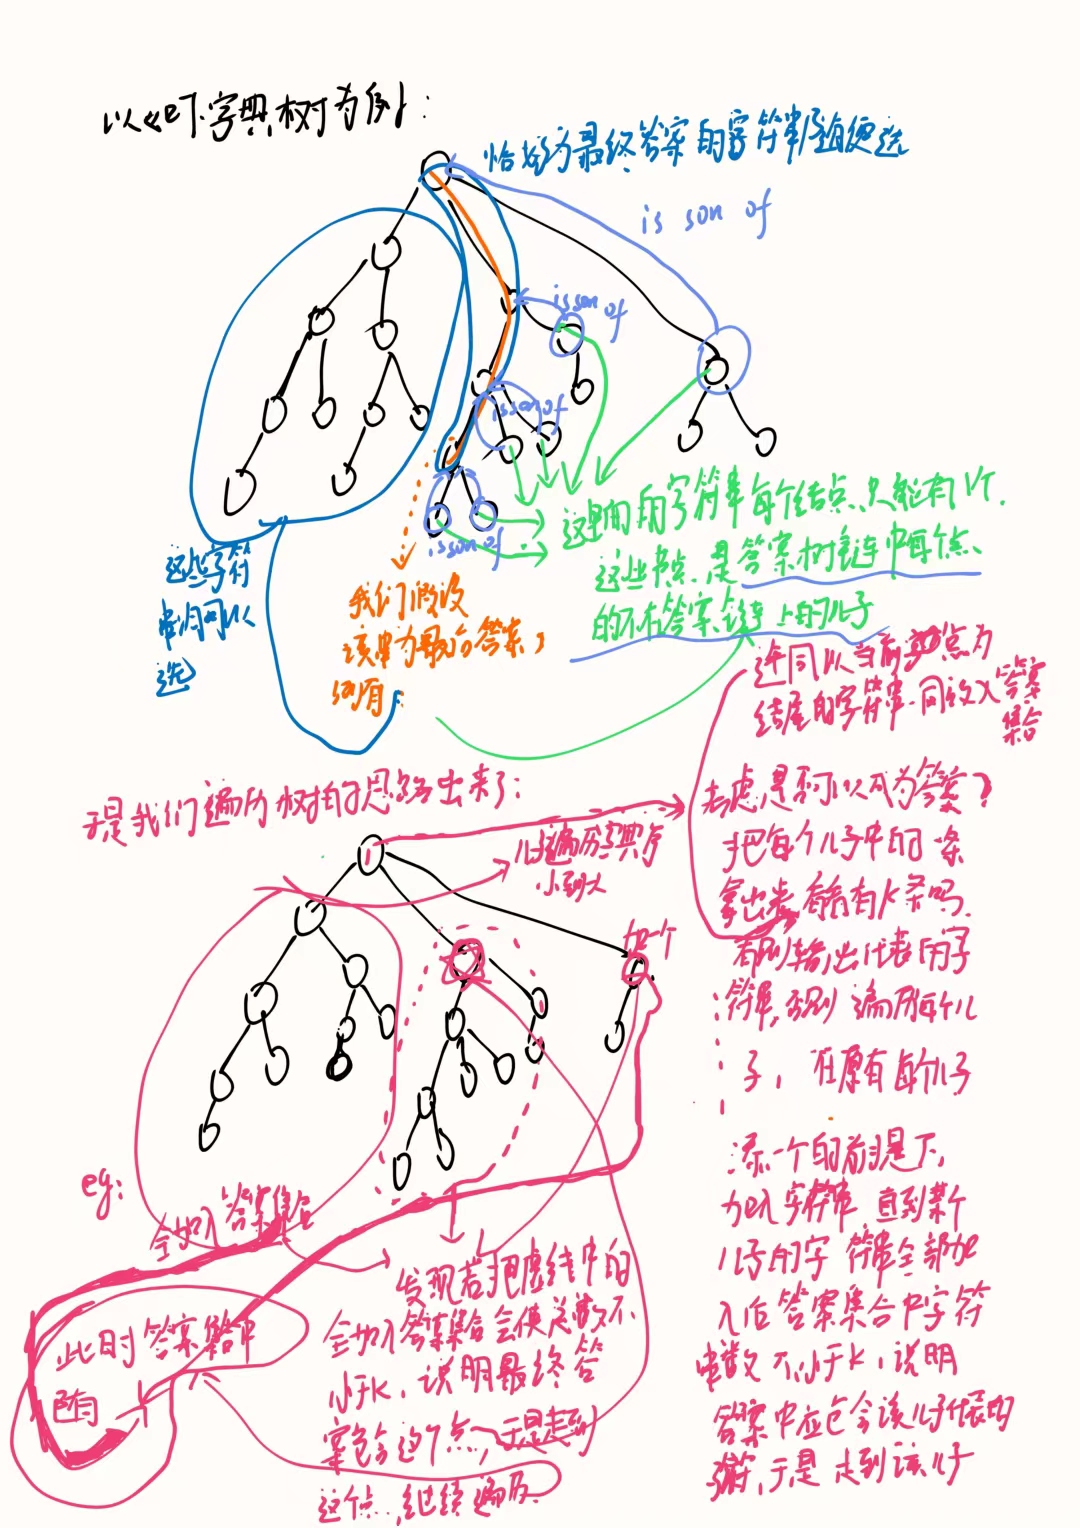 以如下字典树为例:
恰好为最终答案的字符串随便选
is son of
is son of
is son of
is son of
这里面的字符串每个结点只能有1个.
这些节点是答案树链中每个点
的不在答案链上的儿子
这些字符
串均可以
选
我们假设
该串为最后答案,
则有:
于是我们遍历树的思路出来了:
连同以当前节点为
结尾的字符串同放入答案
集合
考虑是否可以成为答案?
把每个儿子中的一条
拿出来看看有k条吗
有则输出代表的字
符串,否则遍历每个儿
子,在原有每个儿子
添一个的前提下,
加入字符串直到某个
儿子的字符串全部加
入后答案集合中字符
串数不小于k,说明
答案中应包含该儿子代表的
字符,于是走到该儿子
儿子遍历字典序
小到大
加一个
eg:
全加入答案集合
发现若把虚线中的
全加入答案集合会使总数不
小于k,说明最终答
案包含这个点,于是走到
这个点,继续遍历.
此时答案集合中